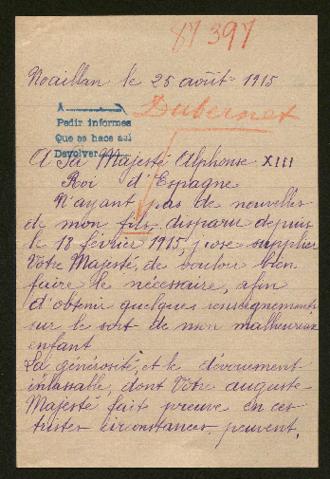 87 397
Noaillan le 25 août 1915
A
Pedir informes
Que se hace así
Devolver
Dubernet
A Sa Majesté Alphonse XIII
Roi d'Espagne
N'ayant pas de nouvelles
de mon fils, disparu depuis
le 18 février 1915, j'ose supplier
Votre Majesté, de vouloir bien
faire le nécessaire, afin
d'obtenir quelques renseignements
sur le sort de mon malheureux
enfant
La générosité, et le dévouement
inlassable, dont Votre auguste
Majesté fait preuve en ces
tristes circonstances peuvent,